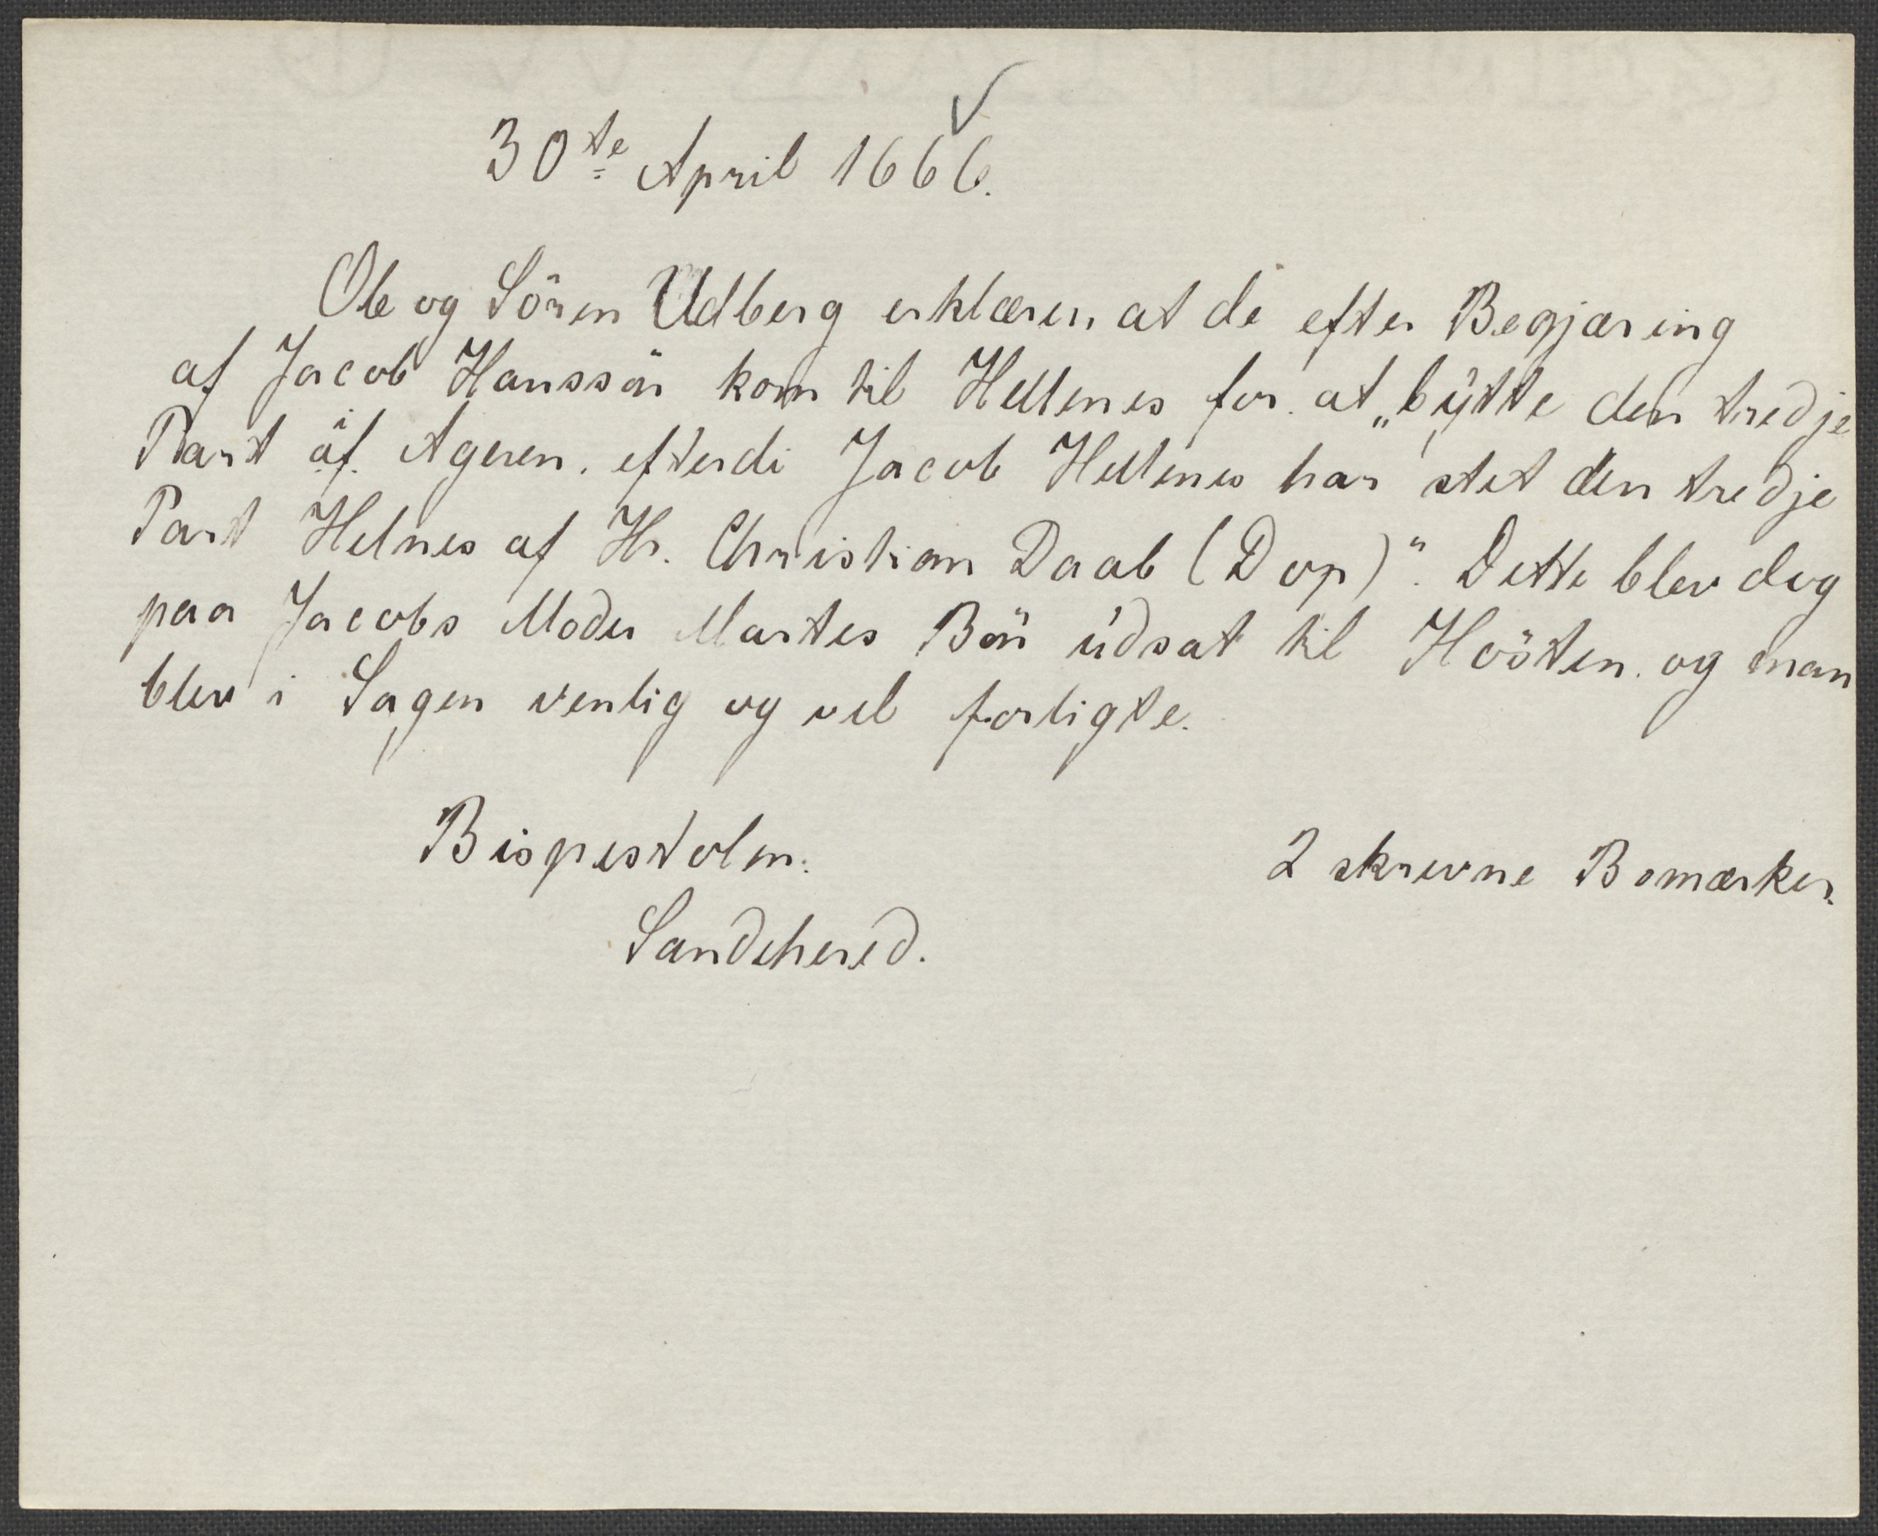 30te April 1666.
Ole og Sören Udberg erklærer at de efter Begjæring
af Jacob Hanssön kom til Hellenes for at „bÿtte den tredje
Part af Ageren. efterdi Jacob Hellenes har stet den tredje
Part Helnes af Hr. Christian Daab (Dop)“. Dette blev dog
paa Jacobs Moder Martes Bön udsat til Höösten. og man
blev i Sagen venlig og vel forligte.
Bispestolen.
2 skrevne Bomærker.
Sandehered.